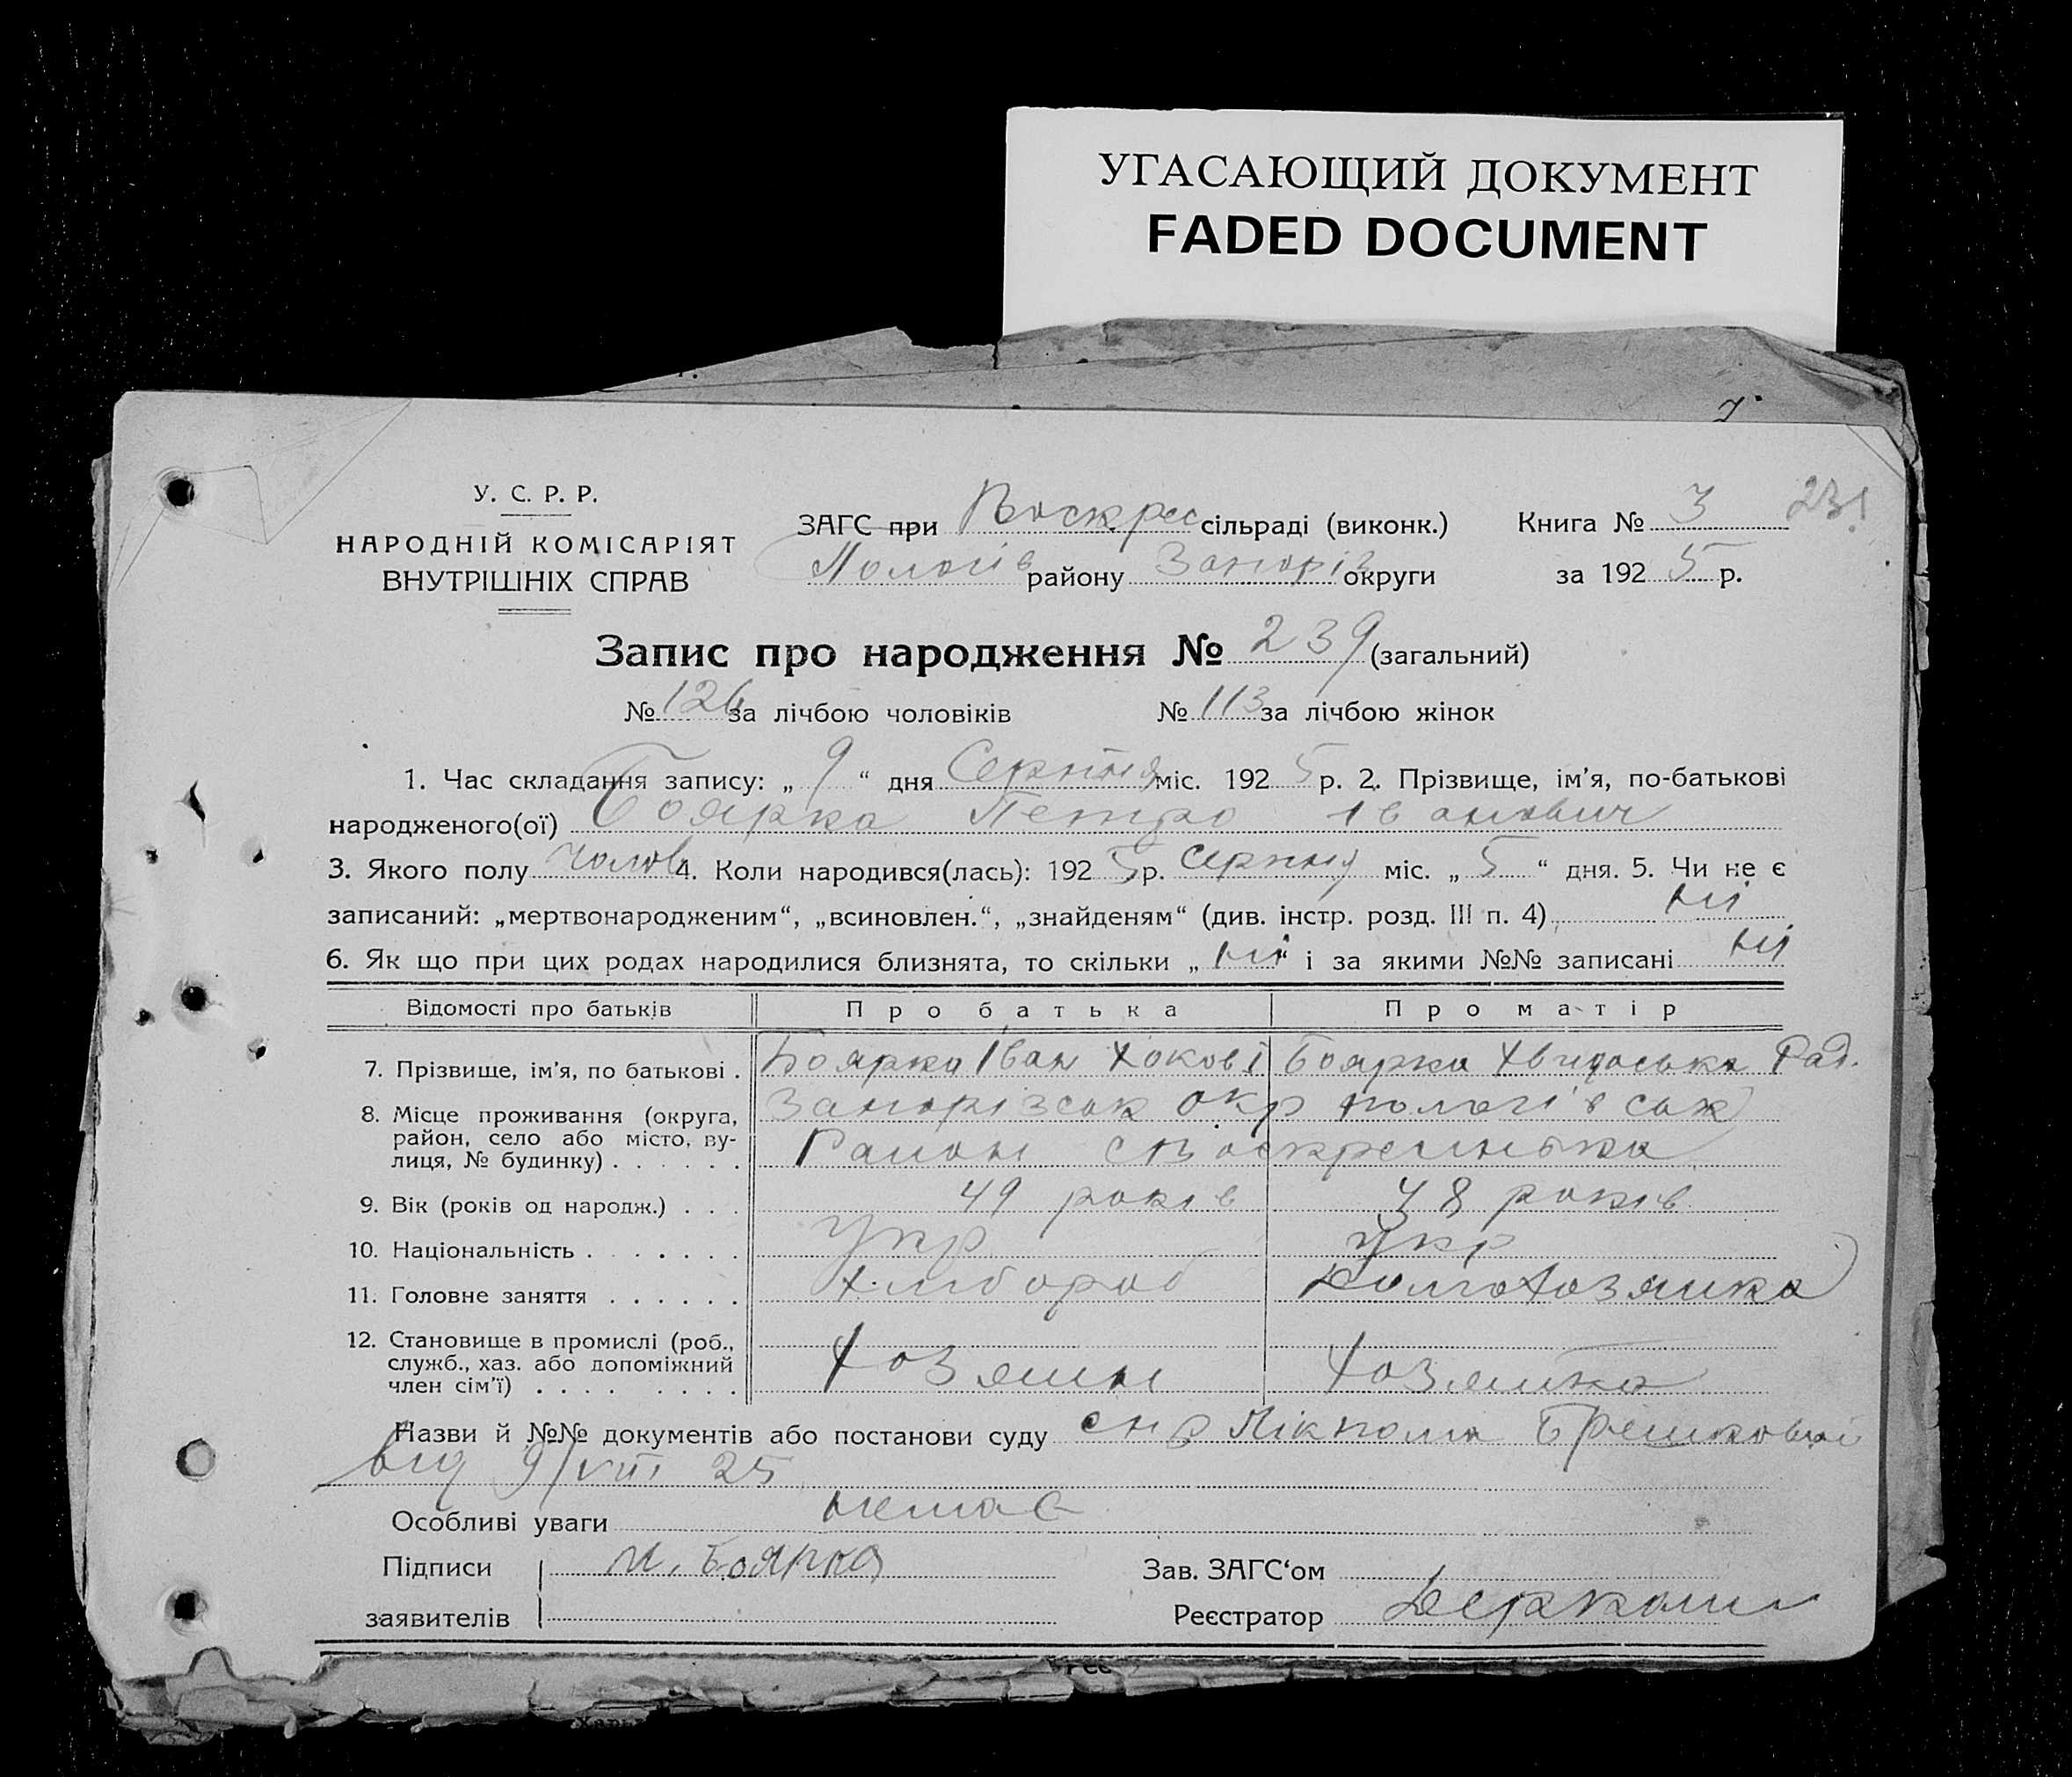 УГАСАЮЩИЙ ДОКУМЕНТ
FADED DOCUMENT
У. С. Р. Р.
НАРОДНІЙ КОМІСАРІЯТ
ВНУТРІШНІХ СПРАВ
ЗАГС при Воскрес сільраді (виконк.)
Пологів району Запоріз округи
Книга № 3
231
за 1925 р.
Запис про народження № 239 (загальний)
№ 126 за лічбою чоловіків № 113 за лічбою жінок
1. Час складання запису: „ 9 “ дня Серпня міс. 1925 р. 2. Прізвище, ім’я, по-батькові
народженого(ої) Боярка Петро Іванович
3. Якого полу чолов 4. Коли народився(лась): 1925 р. серпня міс. „ 5 “ дня. 5. Чи не є
записаний: „мертвонародженим“, „всиновлен.“, „знайденям“ (див. інстр. розд. III п. 4) ні
6. Як що при цих родах народилися близнята, то скільки „ ні “ і за якими №№ записані ні
Відомості про батьків Про батька Про матір
7. Прізвище, ім’я, по батькові . Боярка Іван Боярка Рад.
8. Місце проживання (округа, Запорізськ окр пологівськ
район, село або місто, ву-
лиця, № будинку) . . . . . . Район с Воскресинька
9. Вік (років од народж.) . . . 49 років 48 років
10. Національність . . . . . . . Укр Укр
11. Головне заняття . . . . . . Хлібороб Домохозяика
12. Становище в промислі (роб.,
служб., хаз. або допоміжний
член сім’ї) . . . . . . . . Хозяин Хозяика
Назви й №№ документів або постанови суду
від 9/VIII 25
Особливі уваги немає
Підписи И. Боярка Зав. ЗАГС‘ом
заявителів Реєстратор